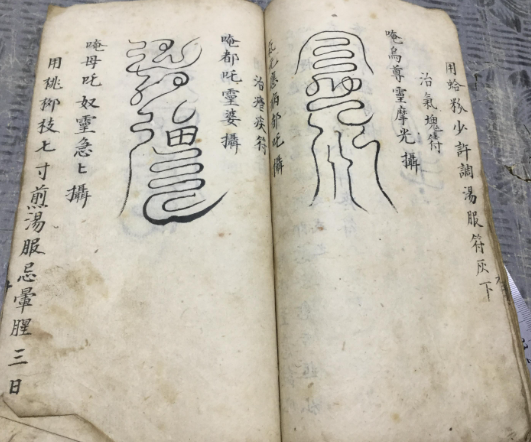 用蛤粉少許調湯服符灰下
治氣塊符
唵烏尊靈摩光攝
治瘧疾符
唵都吒靈婆攝
唵母吒奴靈急匕攝
用桃柳枝七寸煎湯服忌葷腥三日